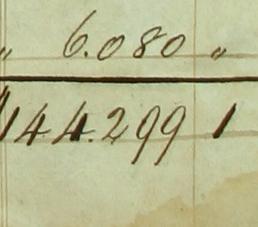 „ 6.080 „
144.299 1